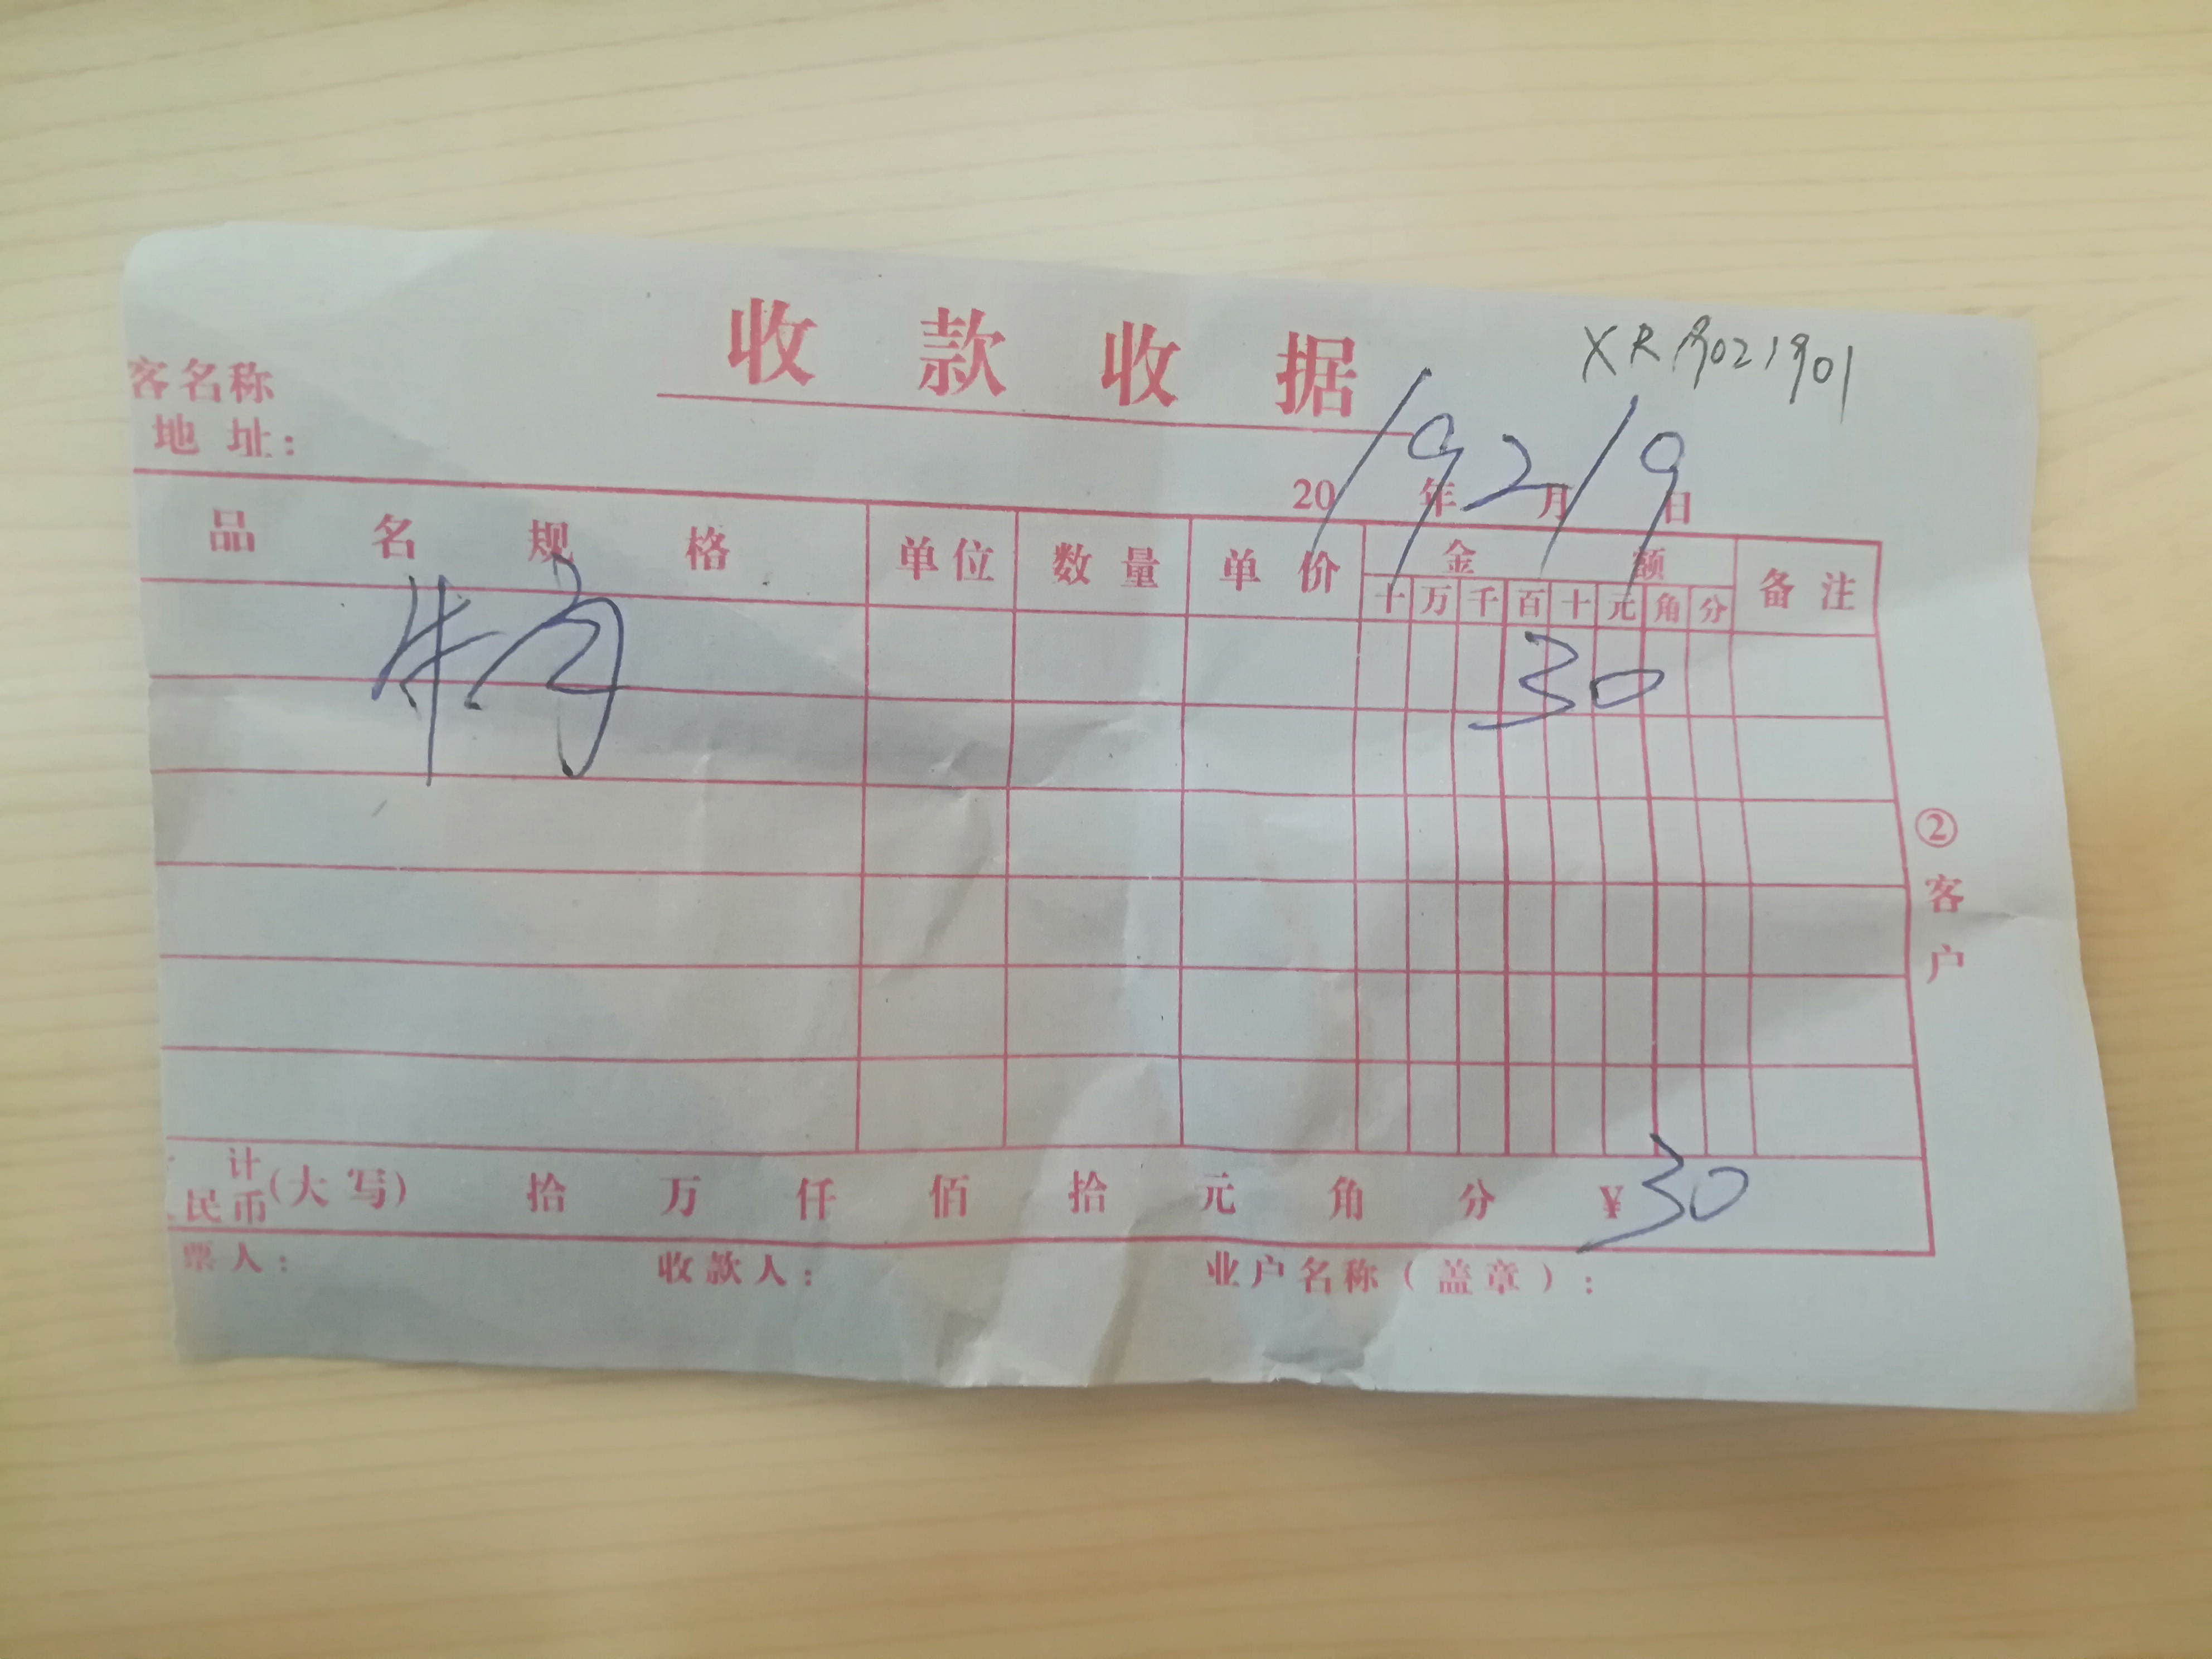 收款收据
XR19021901
客名称
地址:
2019年2月19日
品名规格 单位 数量 单价 金额 备注
十 万 千 百 十 元 角 分
牛肉 30
②客户
计
民币(大写) 拾 万 仟 佰 拾 元 角 分 ¥30
票人: 收款人: 业户名称(盖章):